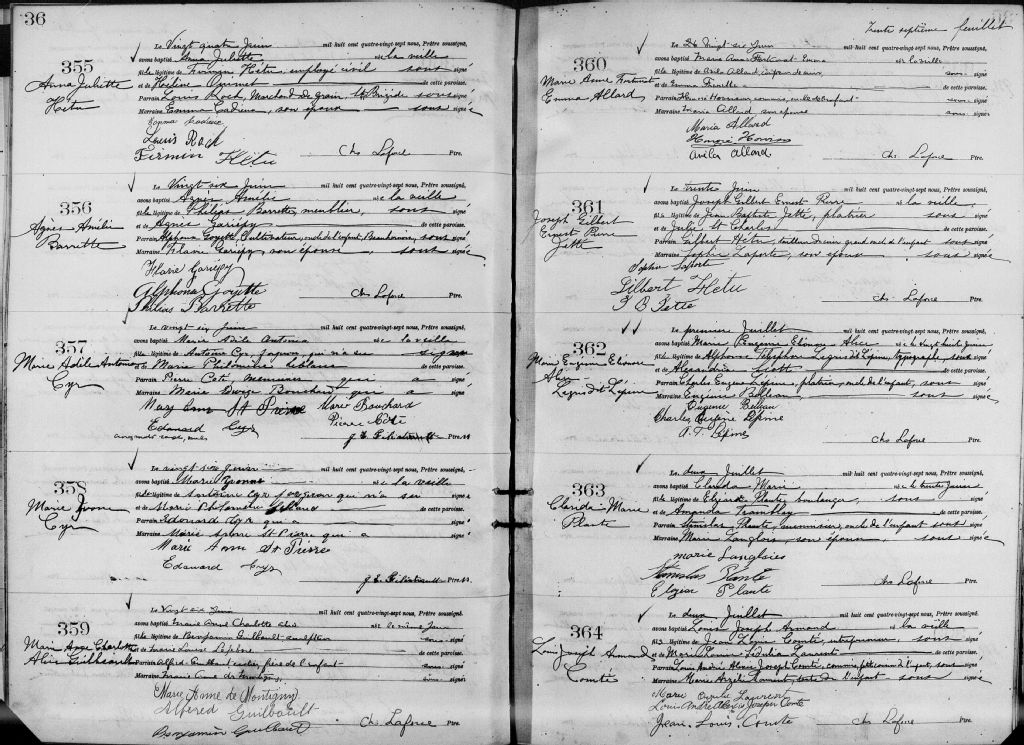 36
355
Anna Juliette
Hétu
Le Vingt quatre Juin mil huit cent quatre-vingt-sept nous, Prêtre soussigné,
avons baptisé Anna Juliette née la veille
fille légitime de Firmin Hétu, employé civil sous signé
et de de cette paroisse.
Parrain Louis Roch, Marchand de grain Ste Brigide sous signé
Marraine Emma Cadieux, son épouse sous signée
Emma Cadieux
Louis Roch
Firmin Hétu
Chs Laforce Ptre.
356
Agnès Amélie
Barrette
Le Vingt six Juin mil huit cent quatre-vingt-sept nous, Prêtre soussigné,
avons baptisé Agnès Amélie née la veille
fille légitime de Philéas Barrette, meublier, sous signé
et de Agnès Gariépy de cette paroisse.
Parrain Alphonse Goyette, Cultivateur, oncle de l'enfant, Beauharnois, sous signé
Marraine Flavie Gariépy, son épouse, sous signée
Flavie Gariépy
Alphonse Goyette
Philéas Barrette
Chs Laforce Ptre.
357
Marie Adèle Antonia
Cyr
Le vingt six Juin mil huit cent quatre-vingt-sept nous, Prêtre soussigné,
avons baptisé Marie Adèle Antonia née la veille
fille légitime de Antoine Cyr, forgeron qui n'a su signer
et de Marie Philomène Leblanc de cette paroisse.
Parrain Pierre Coté menuisier qui a signé
Marraine Marie Bouchard qui a signé
Mary Ann St Pierre Marie Bouchard
Edouard Cyr Pierre Côté
Ptre.
358
Marie Yvonne
Cyr
Le vingt six juin mil huit cent quatre-vingt-sept nous, Prêtre soussigné,
avons baptisé Marie Yvonne née la veille
fille légitime de Antoine Cyr forgeron qui n'a su signé
et de Marie Philomène Leblanc de cette paroisse.
Parrain Edouard Cyr qui a signé
Marraine Marie Anne St-Pierre qui a signé
Marie Ann St Pierre
Edouard Cyr
Ptre.
359
Marie Anne Charlotte
Alice Guilbault
Le Vingt six Juin mil huit cent quatre-vingt-sept nous, Prêtre soussigné,
avons baptisé Marie Anne Charlotte Alice née le même jour
fille légitime de Benjamin Guilbault sous signé
et de Marie Louise de cette paroisse.
Parrain Alfred Guilbault frère de l'enfant sous signé
Marraine Marie Anne de Montigny sous signée
Marie Anne de Montigny
Alfred Guilbault
Benjamin Guilbault
Chs Laforce Ptre.
Trente septième feuillet
360
Marie Anne Fortunat
Emma Allard
Le Vingt-six Juin mil huit cent quatre-vingt-sept nous, Prêtre soussigné,
avons baptisé Maria Anna Fortunat Emma née la veille
fille légitime de Avila Allard sous signé
et de Emma de cette paroisse.
Parrain commis, oncle de l'enfant sous signé
Marraine Maria Allard son épouse sous signée
Maria Allard
Avila Allard
Chs Laforce Ptre.
361
Joseph Gilbert
Ernest Pierre
Jetté
Le trente Juin mil huit cent quatre-vingt-sept nous, Prêtre soussigné,
avons baptisé Joseph Gilbert Ernest Pierre né la veille,
fils légitime de Jean Baptiste Jetté, platrier sous signé
et de Julie St Charles de cette paroisse.
Parrain Gilbert Hétu, tailleur de cuir grand oncle de l'enfant sous signé
Marraine Sophie Laporte, son épouse sous signée
Sophie Laporte
Gilbert Hetu
J B Jette
Chs Laforce Ptre.
362
Marie Eugénie Elionore
Alice
Legris dit Lépine
Le premier Juillet mil huit cent quatre-vingt-sept nous, Prêtre soussigné,
avons baptisé Marie Eugénie Elionore Alice née le vingt huit Juin
fille légitime de Alphonse Télesphore Legris dit Lépine, typographe, sous signé
et de Alexandria Scott de cette paroisse.
Parrain Charles Eugène Lépine, platrier, oncle de l'enfant, sous signé
Marraine Eugénie sous signée
Eugenie
Charles Eugène Lépine
A. T. Lépine
Chs Laforce Ptre.
363
Clarida Marie
Plante
Le deux Juillet mil huit cent quatre-vingt-sept nous, Prêtre soussigné,
avons baptisé Clarida Marie née le trente Juin
fille légitime de Elzéar Plante boulanger, sous signé
et de Amanda Tremblay de cette paroisse.
Parrain Stanislas Plante, menuisier, oncle de l'enfant sous signé
Marraine Marie Langlois, son épouse, sous signée
marie Langlois
Stanislas Plante
Elozear Plante
Chs Laforce Ptre.
364
Louis Joseph Armand
Comte
Le deux Juillet mil huit cent quatre-vingt-sept nous, Prêtre soussigné,
avons baptisé Louis Joseph Armand né la veille
fils légitime de Jean Louis Comte, entrepreneur, sous signé
et de Marie Louise Laurent de cette paroisse.
Parrain Louis André Alexis Joseph Comte, commis, de l'enfant, sous signé
Marraine Marie Laurent, tante de l'enfant sous signée
Marie Laurent
Louis André Alexis Joseph Comte
Jean-Louis Comte
Chs Laforce Ptre.